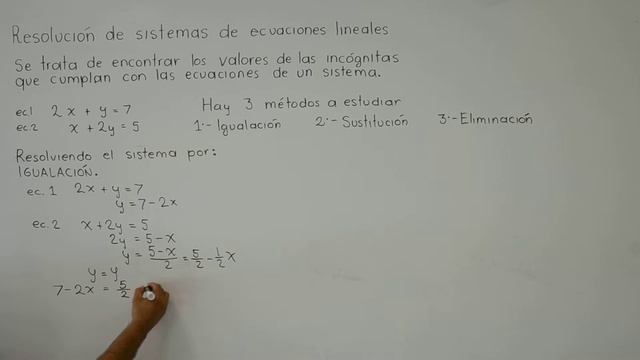 Resolución de sistemas de ecuaciones lineales
Se trata de encontrar los valores de las incógnitas
que cumplan con las ecuaciones de un sistema.
Hay 3 métodos a estudiar
ec1 2x + y = 7
ec.2 x + 2y = 5
1.- Igualación 2.- Sustitución 3.- Eliminación
Resolviendo el sistema por:
IGUALACIÓN.
ec. 1 2x + y = 7
y = 7 - 2x
ec. 2 x + 2y = 5
2y = 5 - x
y = 5-x/2 = 5/2 - 1/2 x
y = y
7 - 2x = 5/2